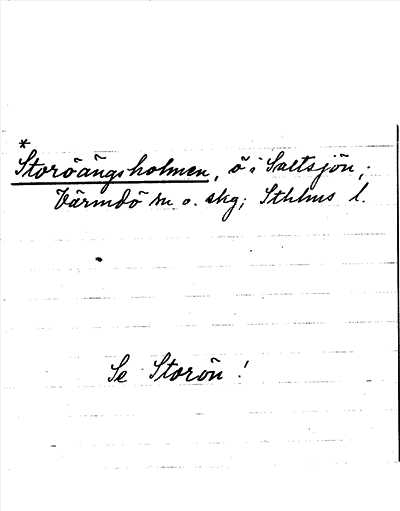 *
Storöängsholmen, ö i Saltsjön;
Värmdö sn o. skg; Sthlms l.
Se Storön!